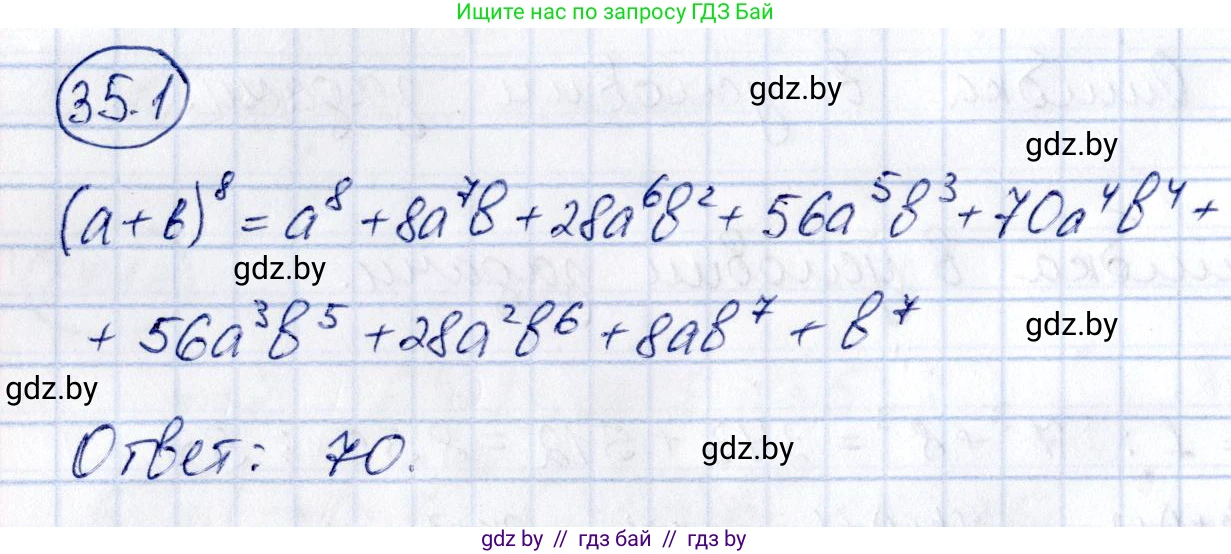 Ищите нас по запросу ГДЗ Бай
35.1
gdz.by
gdz.by
(a+в)⁸ = a⁸ + 8a⁷b + 28a⁶b² + 56a⁵b³ + 70a⁴b⁴ +
gdz.by
+ 56a³b⁵ + 28a²b⁶ + 8ab⁷ + b⁷
gdz.by
gdz.by
Ответ: 70.
gdz.by
gdz.by // гдз бай // гдз by